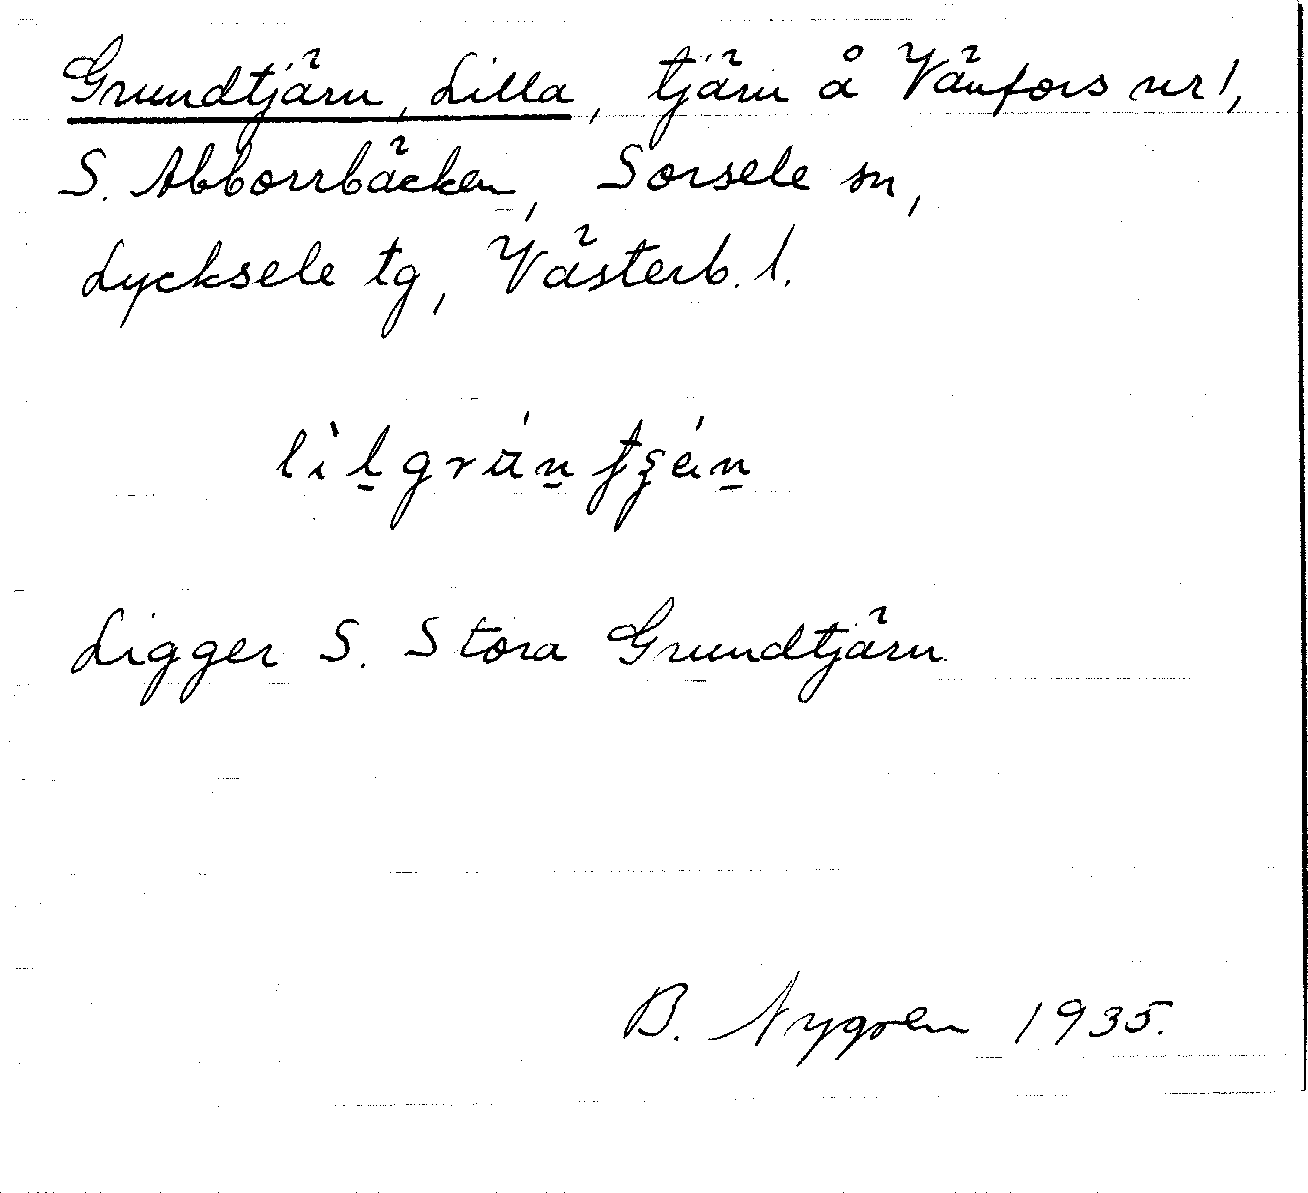 Grundtjärn, Lilla, tjärn å Vänfors nr 1,
S. Abborrbäcken, Sorsele sn,
Lycksele tg, Västerb. l.
Ligger S. Stora Grundtjärn.
B. Nygren 1935.